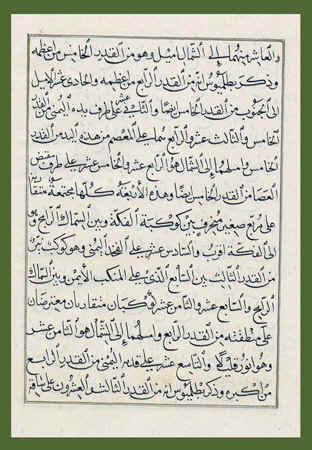 والعاشر منهما إلى الشمال ميل وهو من القدر الخامس من اعظمه
وذكر بطلميوس انه من القدر الرابع من اعظمه والحادي عشر الاميل
الى الجنوب من القدر الخامس ايضا والثاني عشر على طرف يده اليمنى من القدر
الخامس والثالث عشر والرابع عشر على المعصم من هذه اليد من القدر
الخامس واميلهما إلى الشمال هو الرابع عشر والخامس عشر على طرف مقبض
العصا من القدر الخامس ايضا وهذه الاربعة كلها مجتمعة
على مربع صغير منحرف بين كوكبة الفكة وبين السماك الرامح وهو
الى الفكة اقرب والسادس عشر على الفخذ اليمنى وهو كوكب نير
من القدر الثالث بين السابع الذي على المنكب الايمن وبين السماك
الرامح والسابع عشر والثامن عشر كوكبان متقاربان معترضان
على منطقته من القدر الرابع واميلهما إلى الشمال هو الثامن عشر
وهو انور قليلا والتاسع عشر على قدمه اليمنى من القدر الرابع
من اكبره وذكر بطلميوس انه من القدر الثالث والعشرون على ساقه